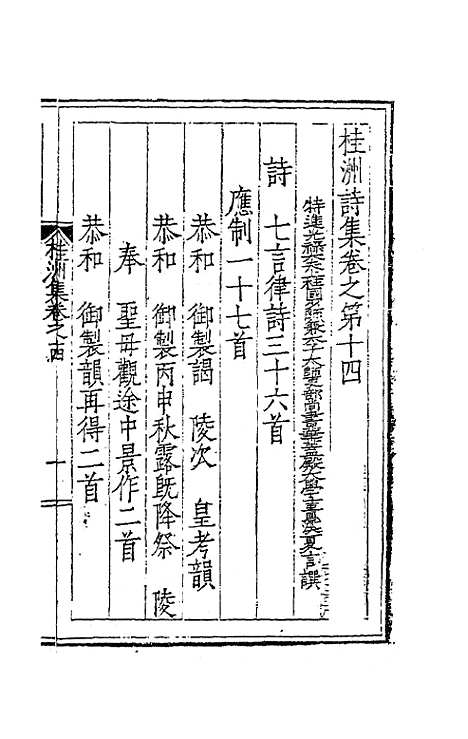 桂洲詩集卷之第十四
特進光祿大夫上柱國少師兼太子太師吏部尚書華蓋殿大學士貴溪夏言譔
詩 七言律詩三十六首
應制一十七首
恭和 御製謁 陵次 皇考韻
恭和 御製丙申秋露旣降祭 陵
奉 聖母觀途中景作二首
恭和 御製韻再得二首
桂洲集卷之十四 一